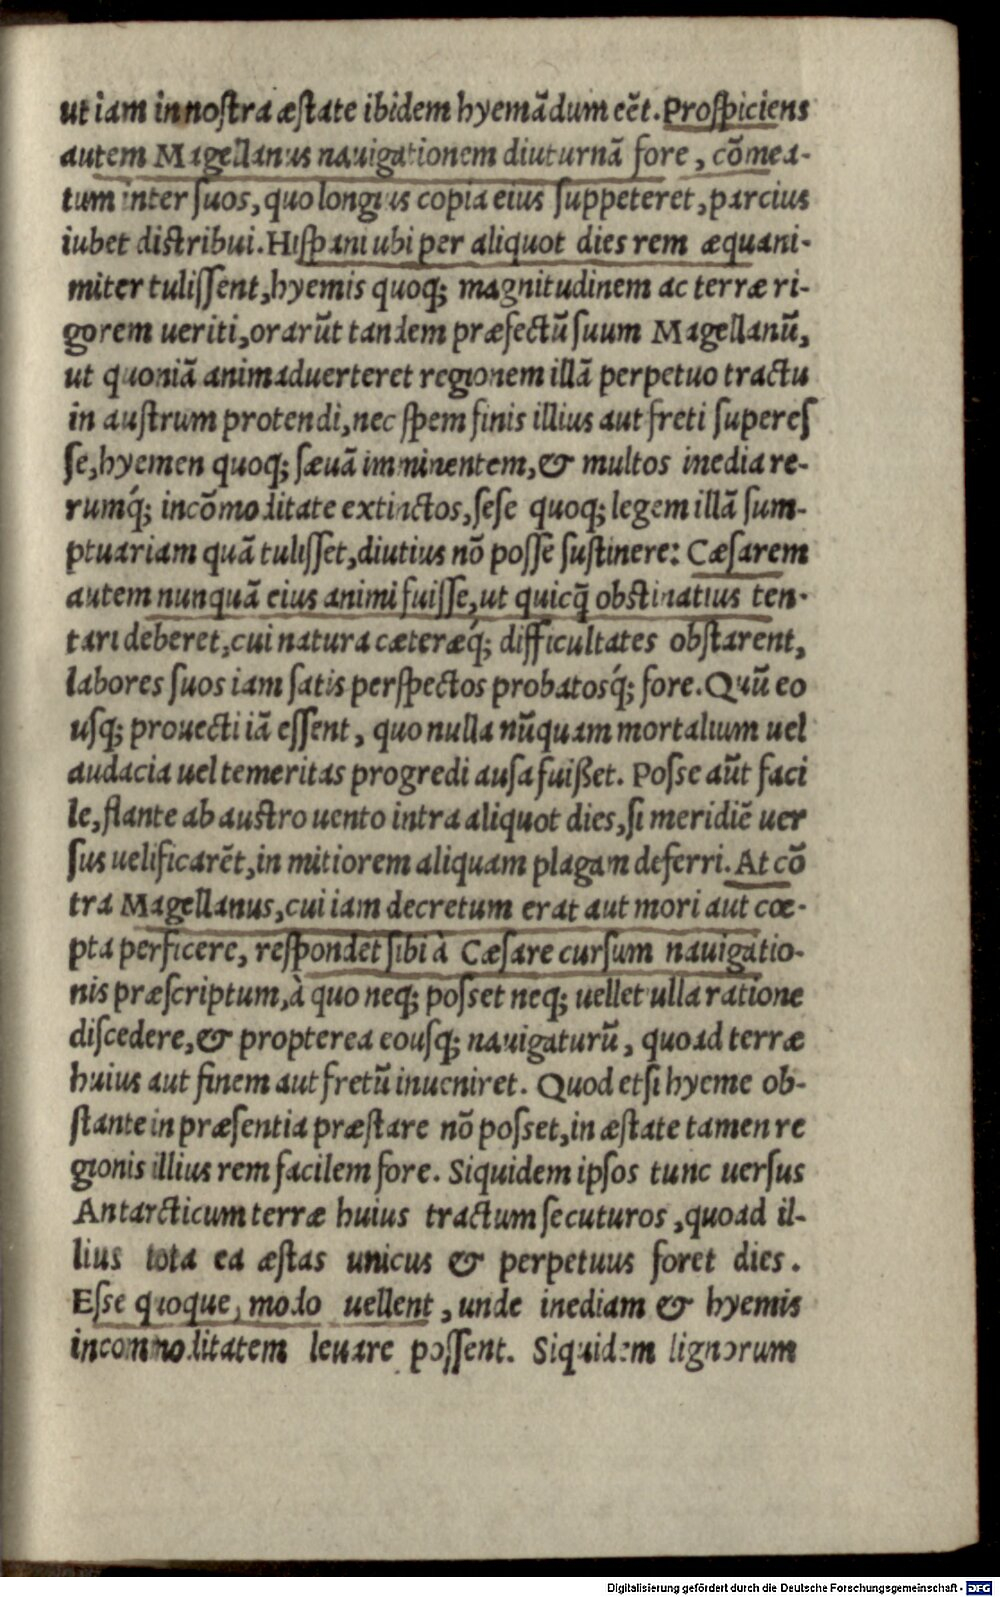 ut iam in nostra æstate ibidem hyemãdum eẽt. Prospiciens
autem Magellanus nauigationem diuturnã fore, cõmea-
tum inter suos, quo longius copia eius suppeteret, parcius
iubet distribui. Hispani ubi per aliquot dies rem æquani-
miter tulissent, hyemis quoq; magnitudinem ac terræ ri-
gorem ueriti, orarũt tandem præfectũ suum Magellanũ,
ut quoniã animaduerteret regionem illã perpetuo tractu
in austrum protendi, nec spem finis illius aut freti superes
se, hyemen quoq; sæuã imminentem, & multos inedia re-
rumq́; incõmoditate extinctos, sese quoq; legem illã sum-
ptuariam quã tulisset, diutius nõ posse sustinere: Cæsarem
autem nunquã eius animi fuisse, ut quicq̃ obstinatius ten-
tari deberet, cui natura cæteræq́; difficultates obstarent,
labores suos iam satis perspectos probatosq́; fore. Quũ eo
usq; prouecti iã essent, quo nulla nũquam mortalium uel
audacia uel temeritas progredi ausa fuißet. Posse aũt faci
le, flante ab austro uento intra aliquot dies, si meridiẽ uer
sus uelificarẽt, in mitiorem aliquam plagam deferri. At cõ
tra Magellanus, cui iam decretum erat aut mori aut cœ-
pta perficere, respondet sibi à Cæsare cursum nauigatio-
nis præscriptum, à quo neq; posset neq; uellet ulla ratione
discedere, & propterea eousq; nauigaturũ, quoad terræ
huius aut finem aut fretũ inueniret. Quod etsi hyeme ob-
stante in præsentia præstare nõ posset, in æstate tamen re
gionis illius rem facilem fore. Siquidem ipsos tunc uersus
Antarcticum terræ huius tractum secuturos, quoad il-
lius tota ea æstas unicus & perpetuus foret dies.
Esse quoque, modo uellent, unde inediam & hyemis
incommoditatem leuare possent. Siquidem lignorum
Digitalisierung gefördert durch die Deutsche Forschungsgemeinschaft - DFG